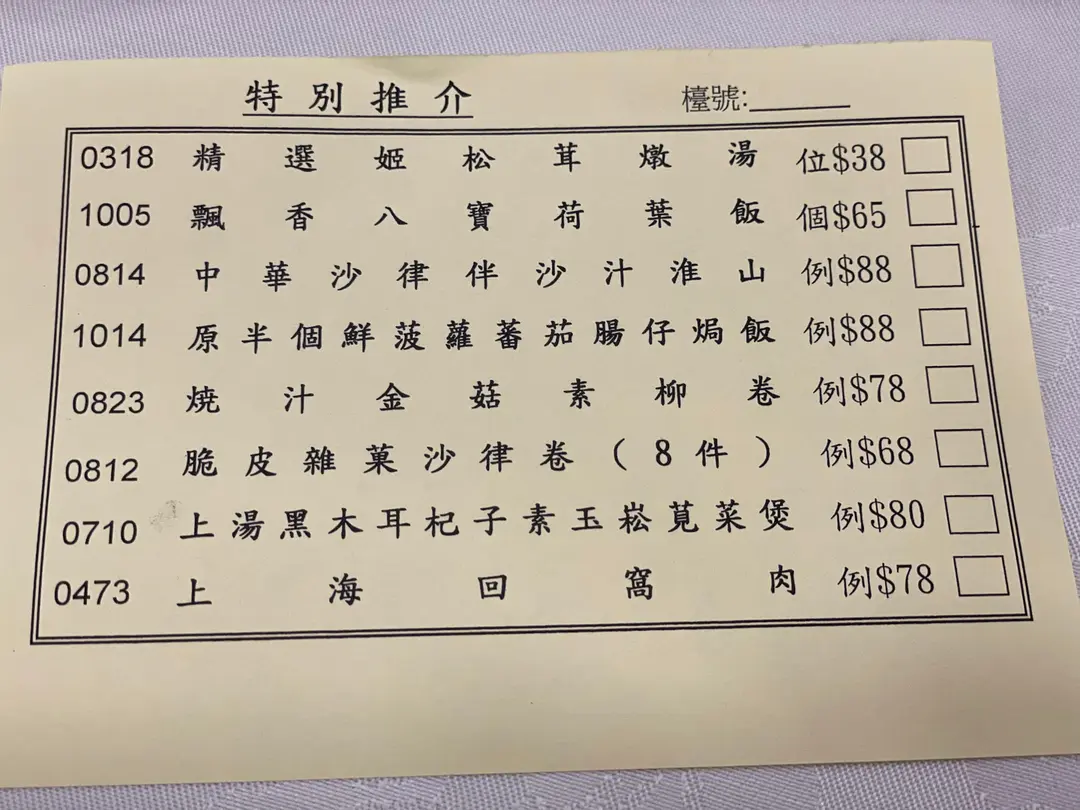 特別推介 檯號:______
0318 精選姬松茸燉湯 位$38
1005 飄香八寶荷葉飯 個$65
0814 中華沙律伴沙汁淮山 例$88
1014 原半個鮮菠蘿蕃茄腸仔焗飯 例$88
0823 燒汁金菇素柳卷 例$78
0812 脆皮雜菓沙律卷(8件) 例$68
0710 上湯黑木耳杞子素玉崧莧菜煲 例$80
0473 上海回窩肉 例$78